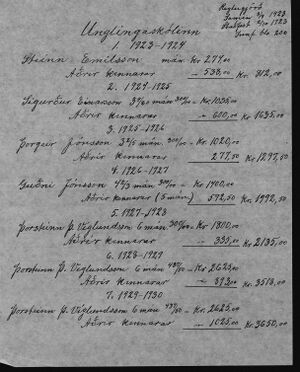 Reglugjörð
Samin 3/9 1923
Staðfest 9/10 1923
bls. 250
Unglingaskólinn
1. 1923-1924
Steinn Emilsson mán Kr 274.00
Aðrir kennarar - 538,00 Kr. 812,00
2. 1924-1925
Sigurður Einarsson mán Kr. 1035,00
Aðrir kennarar - 600,00 Kr. 1635,00
3. 1925-1926
Þorgeir Jónsson mán. Kr. 1020,00
Aðrir kennarar 277,50 Kr 1297,50
4. 1926-1927
Guðni Jónsson mán Kr. 1400,00
Aðrir kennarar (5 mán) 592,50 Kr. 1992,50
5. 1927-1928
Þorsteinn Þ. Víglundsson 6 mán Kr. 1800,00
Aðrir kennarar - 335,00 Kr 2135,00
6. 1928-1929
Þorsteinn Þ. Víglundsson 6 mán Kr. 2625,00
Aðrir kennarar - 893,00 Kr. 3518,00
7. 1929-1930
Þorsteinn Þ. Víglundsson 6 mán Kr. 2625,00
Aðrir kennarar - 1025,00 Kr. 3650,00